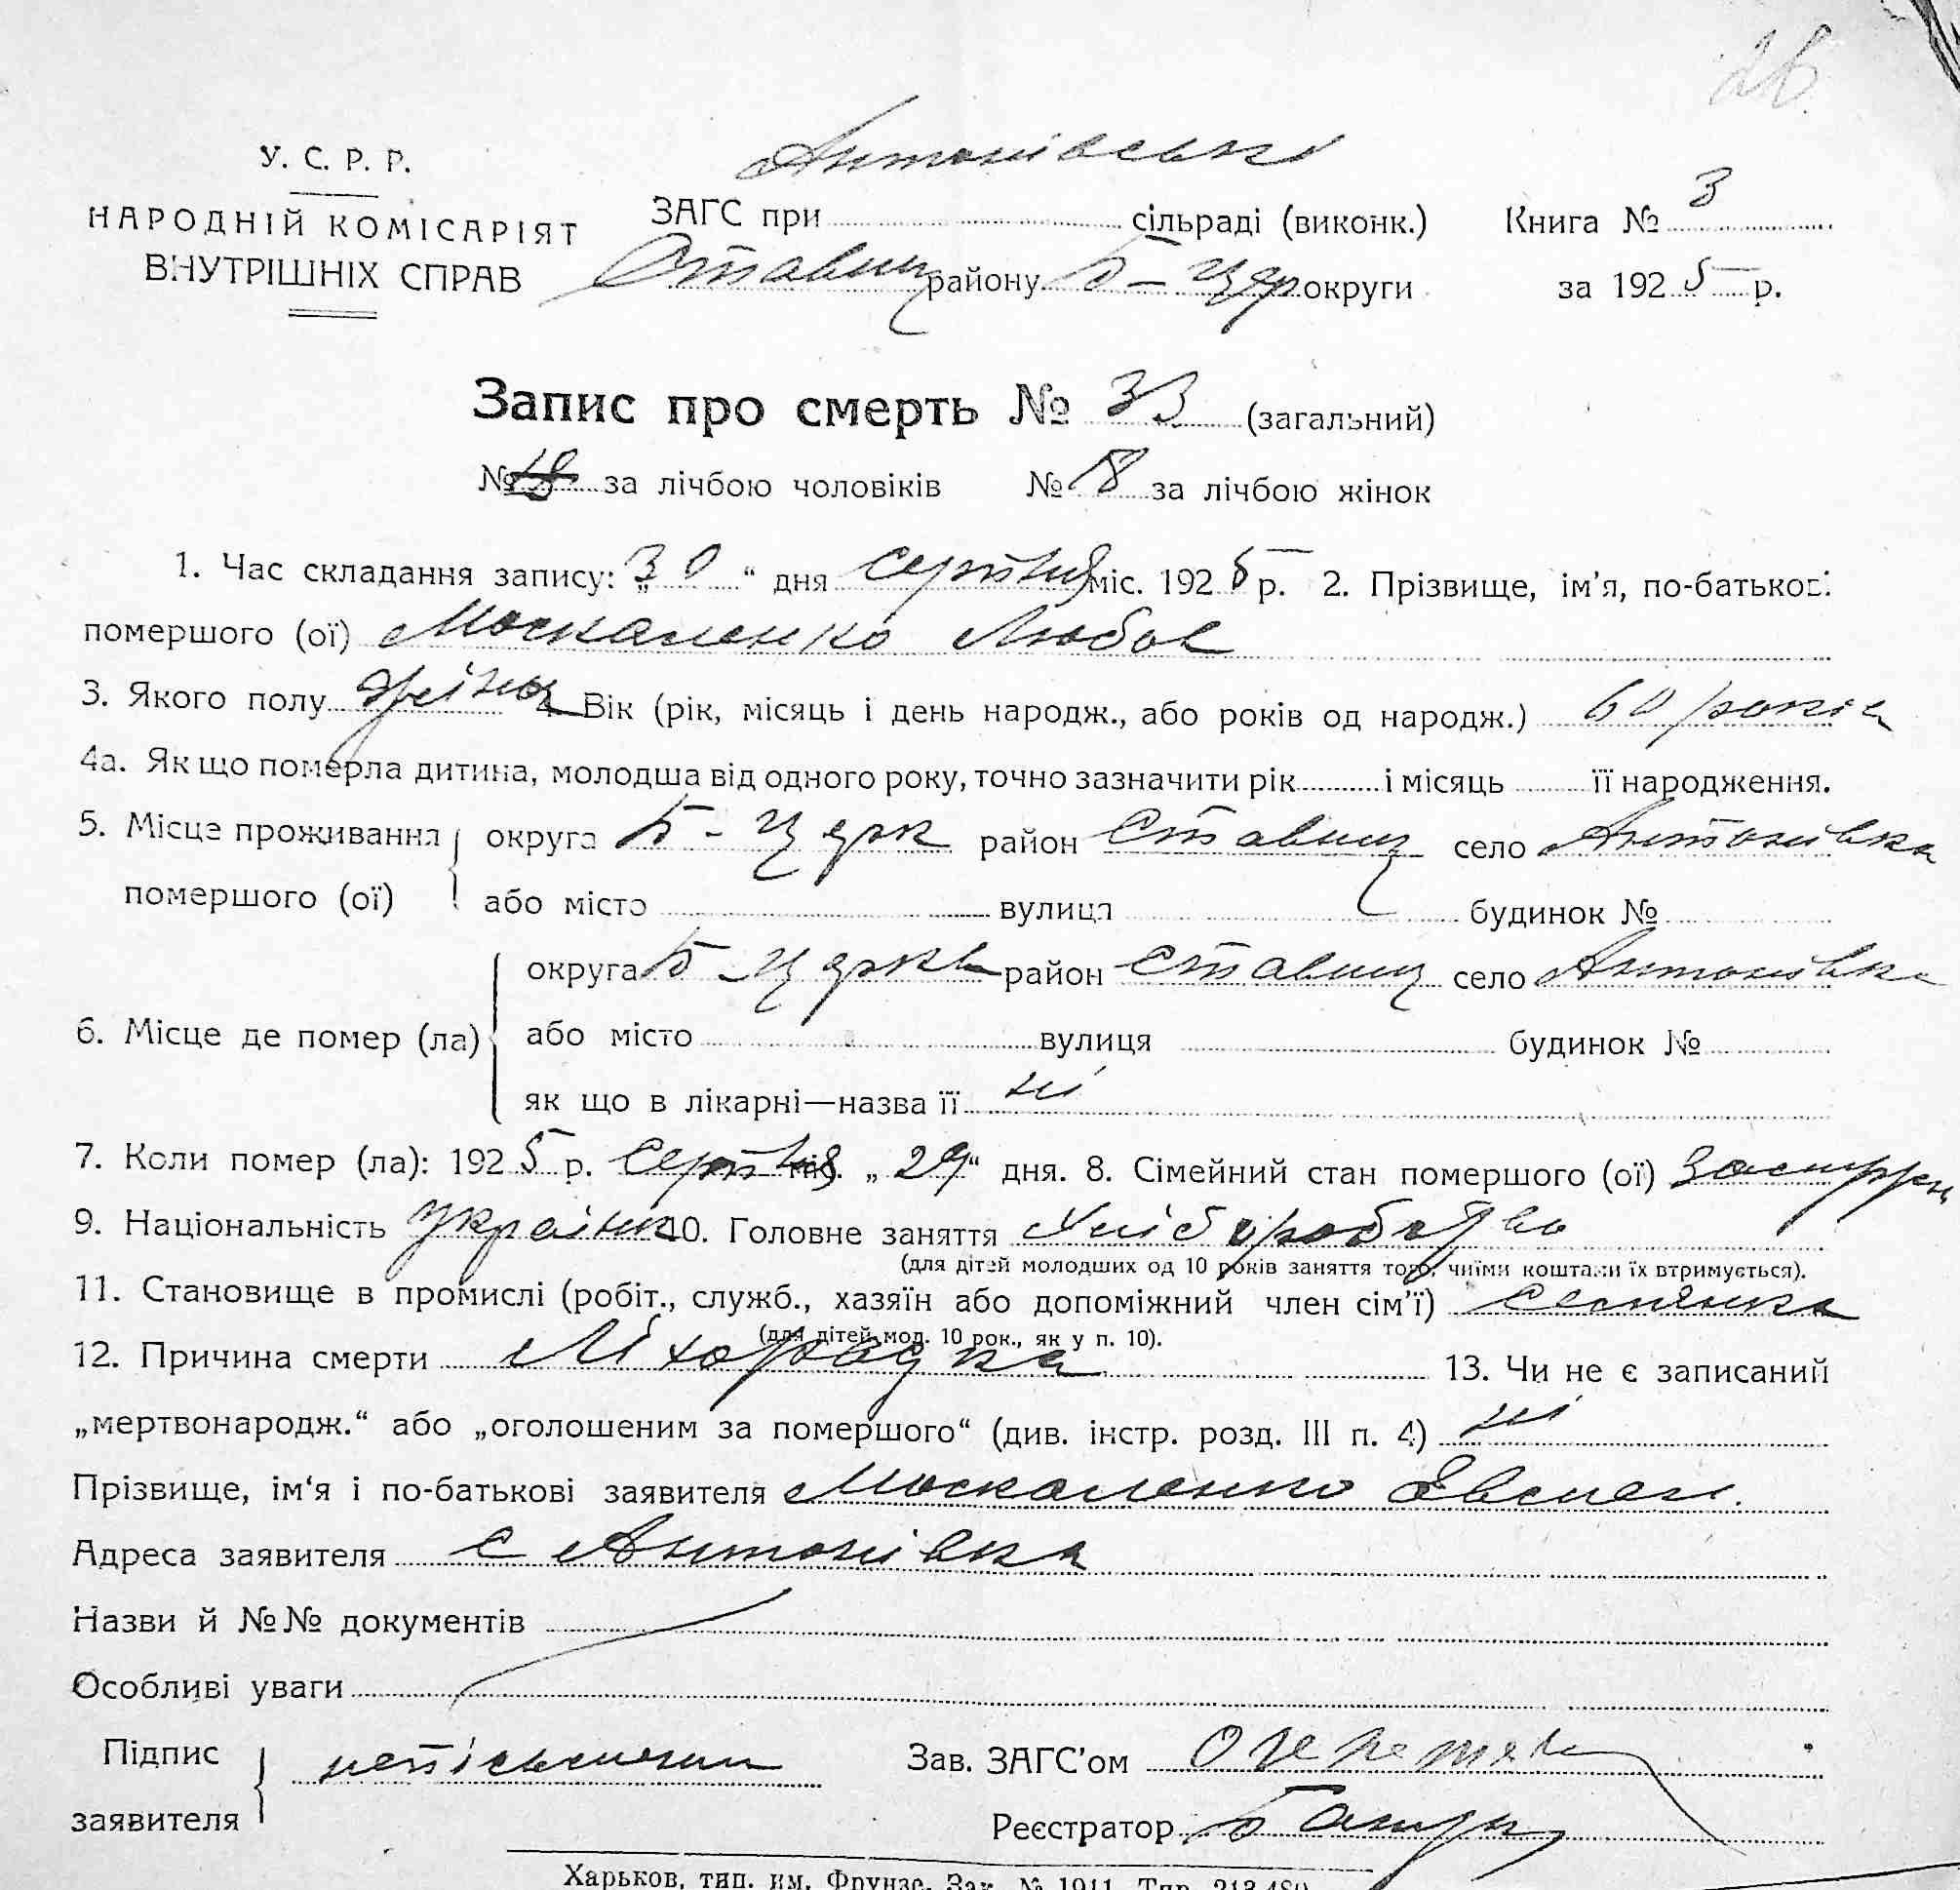 26
Антонівські
У. С. Р. Р.
НАРОДНІЙ КОМІСАРІЯТ
ВНУТРІШНІХ СПРАВ
ЗАГС при сільраді (виконк.) Книга № 3
Ставищ району Б-Цер округи за 1925 р.
Запис про смерть № 33 (загальний)
№ за лічбою чоловіків № 18 за лічбою жінок
1. Час складання запису: „30“ дня серпня міс. 1925 р. 2. Прізвище, ім'я, по-батькові
помершого (ої) Москаленко Любов
3. Якого полу жіноч 4. Вік (рік, місяць і день народж., або років од народж.) 60 років
4а. Як що померла дитина, молодша від одного року, точно зазначити рік і місяць її народження.
5. Місце проживання помершого (ої) округа Б-Церк район Ставищ село Антонівка
або місто вулиця будинок №
6. Місце де помер (ла) округа Б-Церкв район Ставищ село Антонівка
або місто вулиця будинок №
як що в лікарні—назва її ні
7. Коли помер (ла): 1925 р. серпня міс. „29“ дня. 8. Сімейний стан помершого (ої)
9. Національність Українк 10. Головне заняття Хліборобство
(для дітей молодших од 10 років заняття того, чиїми коштами їх втримується).
11. Становище в промислі (робіт., служб., хазяїн або допоміжний член сім'ї) селянка
(для дітей мол. 10 рок., як у п. 10).
12. Причина смерти Ліхорадка 13. Чи не є записаний
„мертвонародж.“ або „оголошеним за помершого“ (див. інстр. розд. III п. 4) ні
Прізвище, ім'я і по-батькові заявителя Москаленко
Адреса заявителя с Антонівка
Назви й №№ документів
Особливі уваги
Підпис заявителя неписьменни Зав. ЗАГС'ом
Реєстратор
Харьков, тип. им. Фрунзе. Зак. № 1911. Тир. 213.480